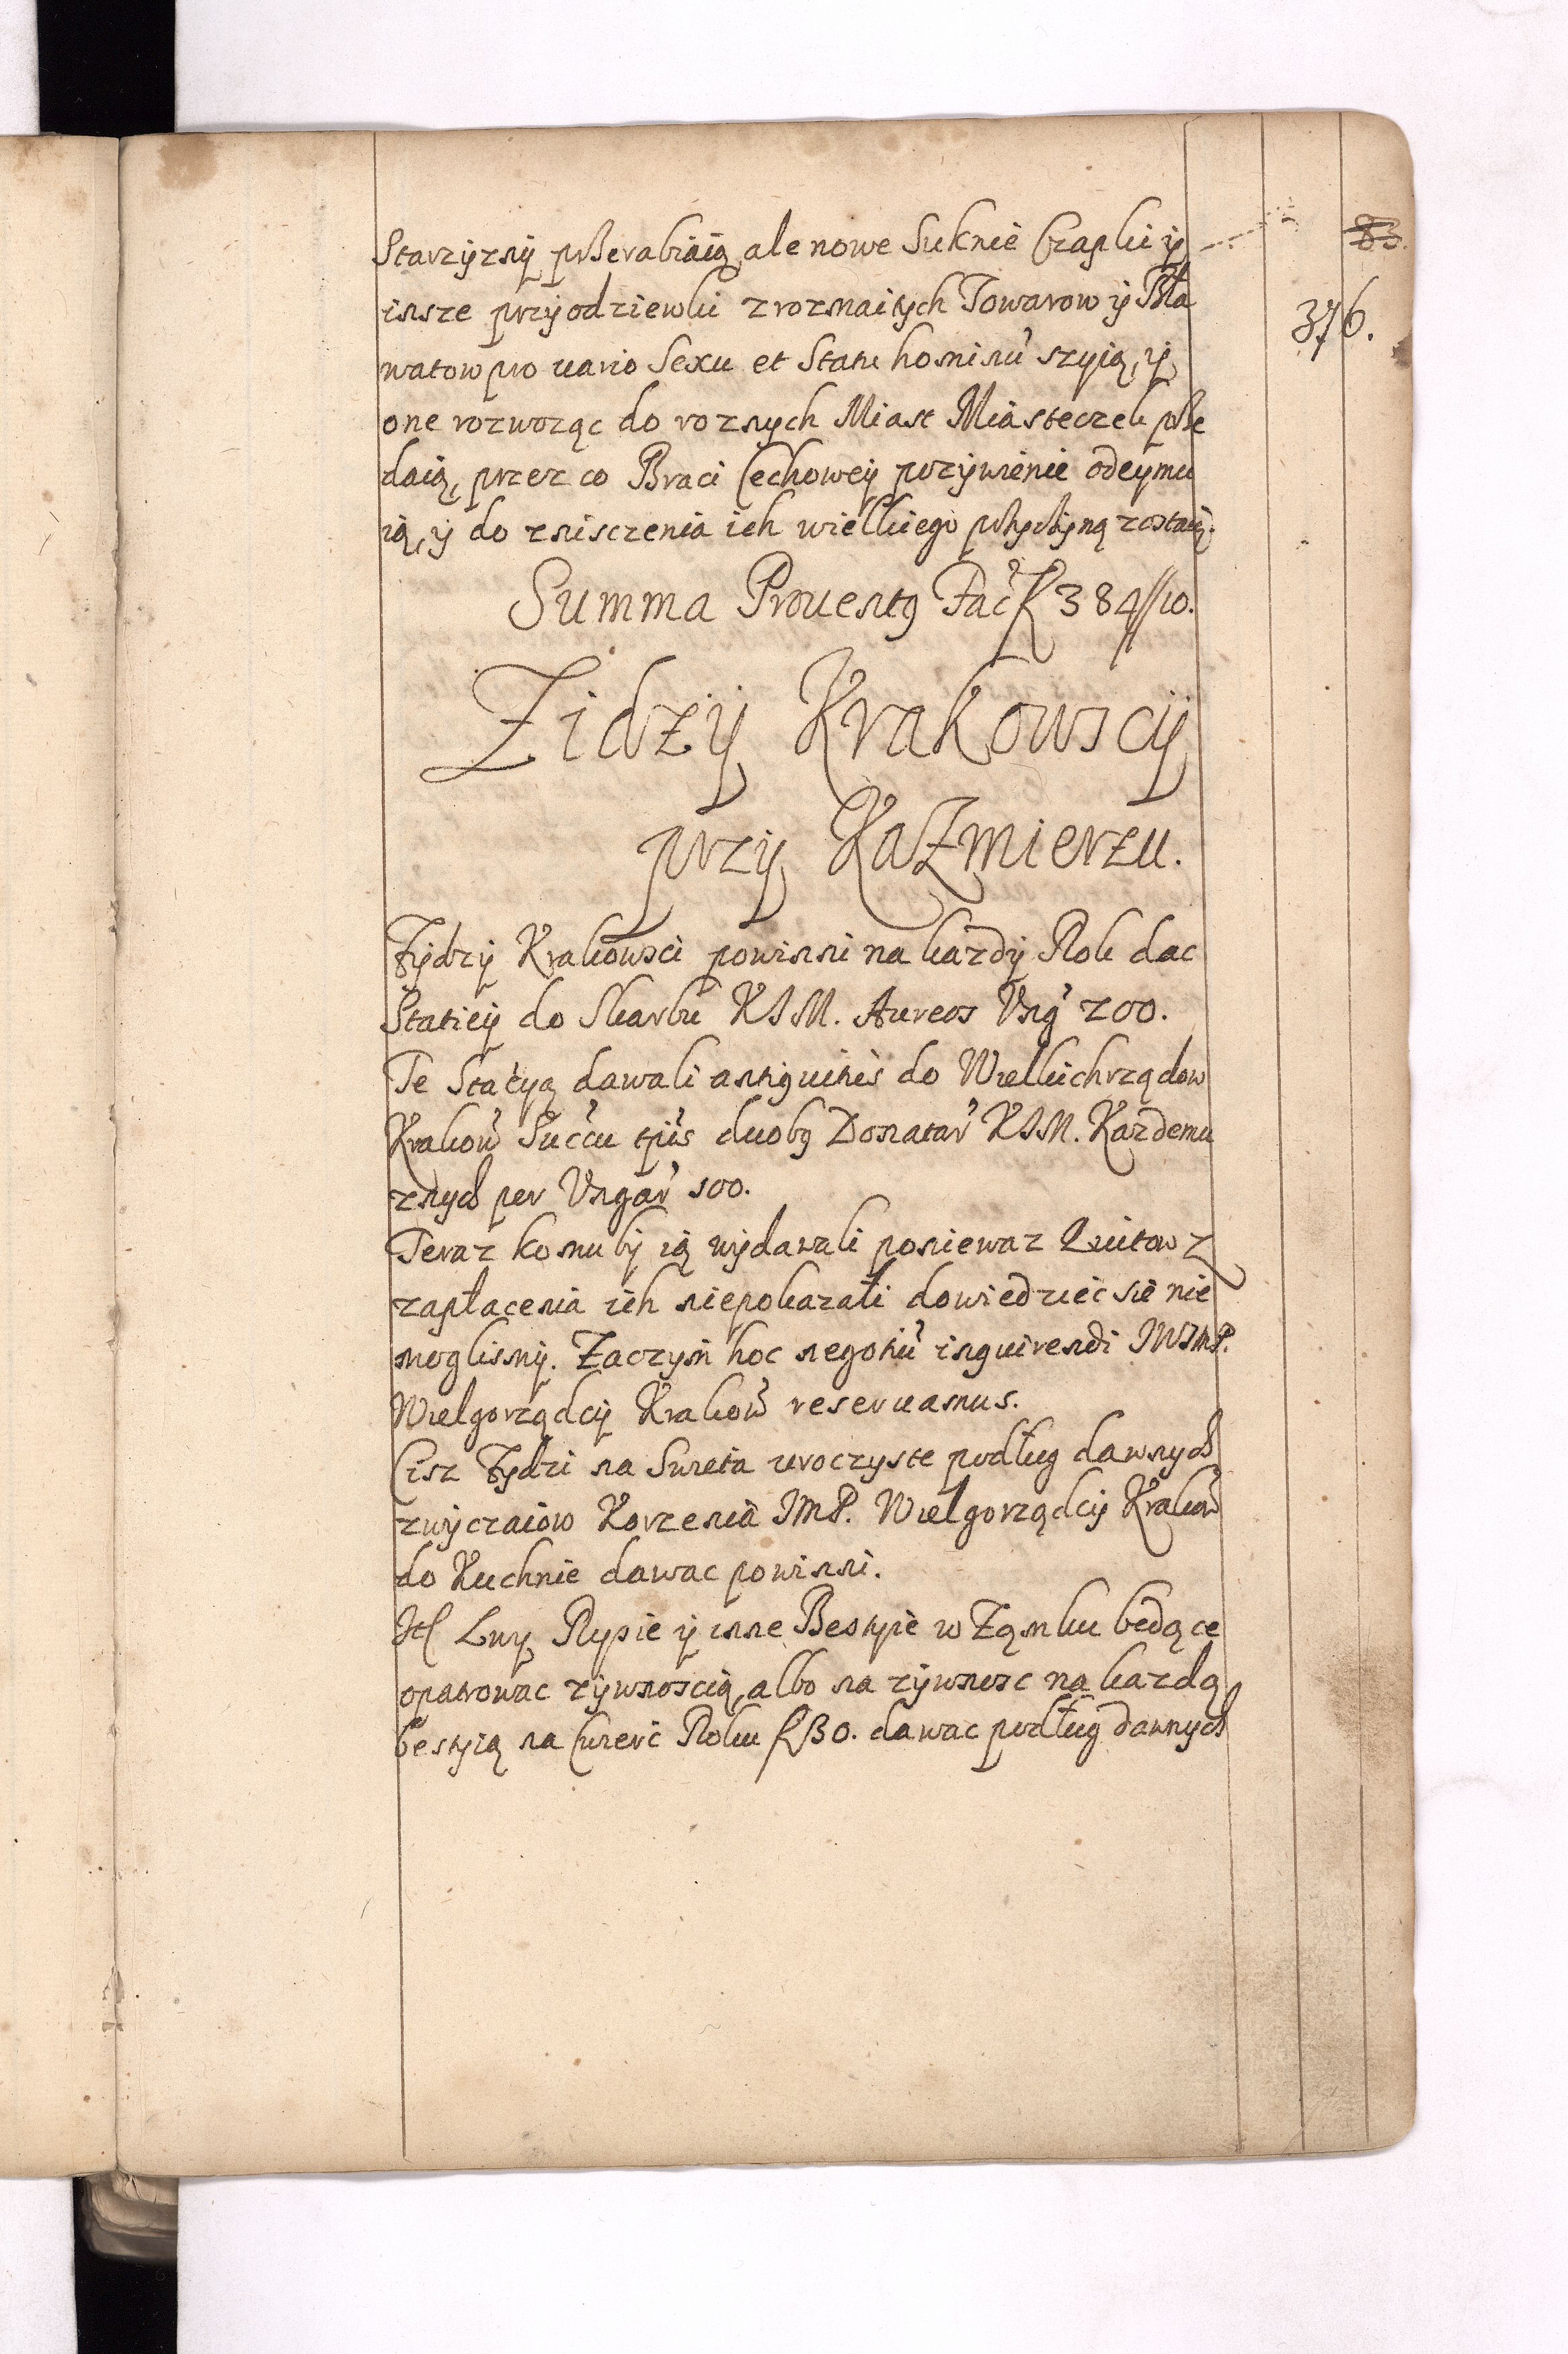 Starzyzny przerabiaią, ale nowe Suknie Czapki ÿ
insze przÿodziewki z roznaitych Towarow ÿ Bła
watow pro uario Sexu et Statu hominu szyią, ÿ
one rozwoząc do roznych Miast Miasteczek prze
daią, przez co Braci Cechoweÿ pozÿwienie odeÿmu
ią, ÿ do zniszczenia ich wielkiego przyczÿną zostaią.
Summa Prouent9 Fac fl 384//10.
Zidzÿ Krakowscÿ
przÿ Kaźmierzu.
Zÿdzÿ Krakowsci powinni na kazdÿ Rok dac
Staticÿ do Skarbu KIM. Aureos Vng 200.
Te Statyą dawali antiquitus do Wielkichrządow
Krakow Succu tpis duob9 Donatar KIM. Kazdemu
znych per Vngar 100.
Teraz komubÿ ią wÿdawali poniewaz Quitow z
zapłacenia ich niepokazali dowiedziec sie nie
moglismÿ. Zaczym hoc negotiu inquirendi IWIMP.
Wielgorządcÿ Krakow reseruamus.
Cisz Zydzi na Swieta uroczyste podług dawnych
zwÿczaiow Korzenia IMP. Wielgorządcÿ Krakow
do Kuchnie dawac powinni.
Itl Lwy Rysie ÿ inne Bestyie w Ząmku będące
opatrowac zÿwnoscią, albo na zÿwnosc na kazdą
bestyią na Cwierc Roku fl 30. dawac podług dawnych
83.
376.